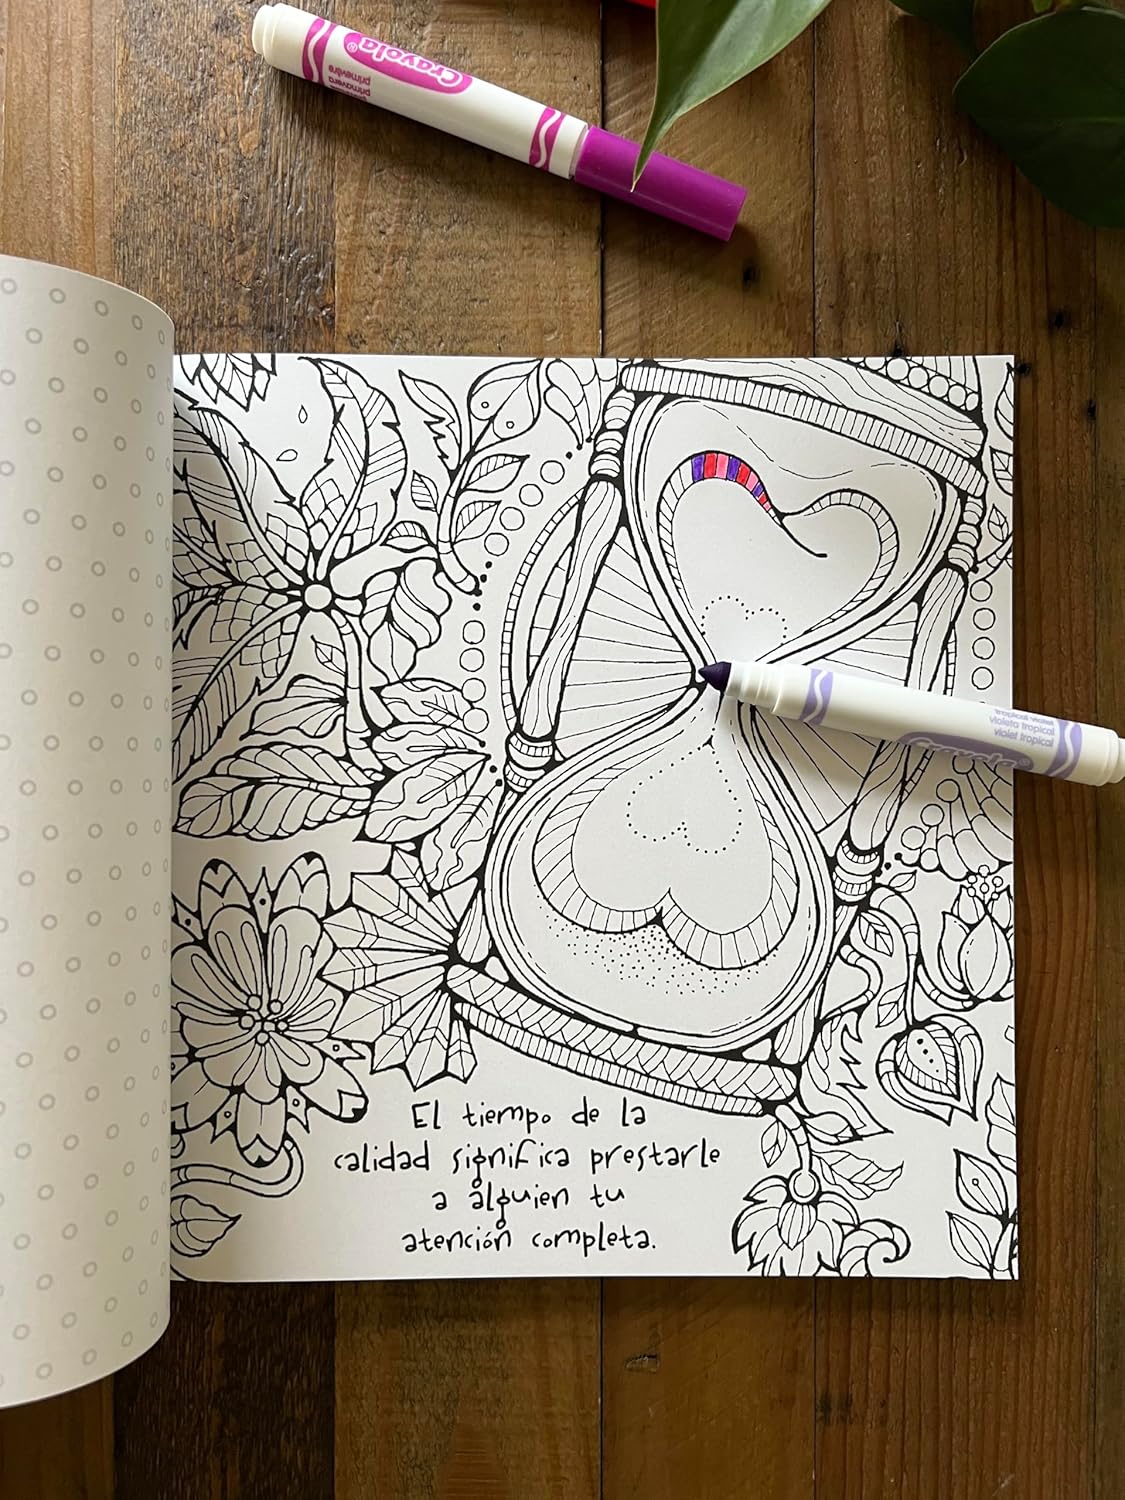 Crayola®
primavera
primevère
tropical violet
violeta tropical
violet tropical
Crayola®
El tiempo de la
calidad significa prestarle
a alguien tu
atención completa.